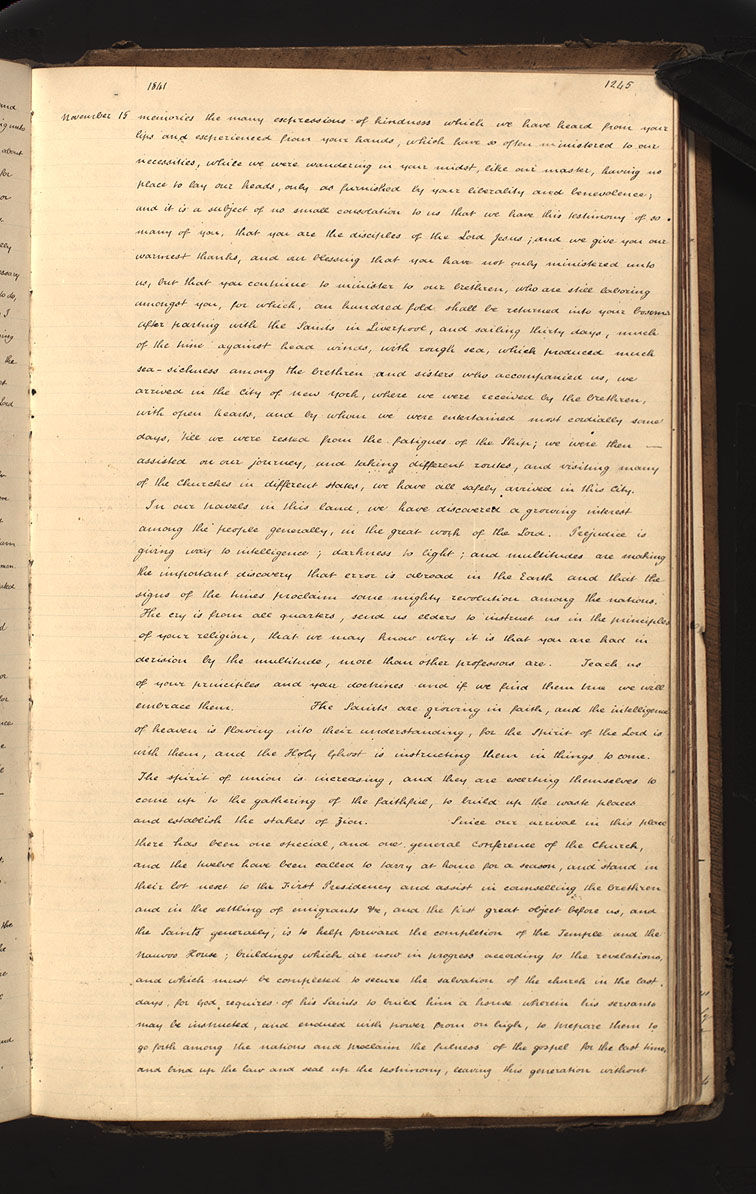 1841
1245
November 15 memories the many expressions of kindness which we have heard from your
lips and experienced from your hands, which have so often ministered to our
necessities, while we were wandering in your midst, like our master, having no
place to lay our heads, only as furnished by your liberality and benevolence;
and it is a subject of no small consolation to us that we have this testimony of so
many of you, that you are the disciples of the Lord Jesus; and we give you our
warmest thanks, and our blessing that you have not only ministered unto
us, but that you continue to minister to our brethren, who are still laboring
amongst you, for which, an hundred fold shall be returned into your bosoms
after parting with the Saints in Liverpool, and sailing thirty days, much
of the time against head winds, with rough sea, which produced much
sea-sickness among the brethren and sisters who accompanied us, we
arrived in the City of New York, where we were received by the brethren,
with open hearts, and by whom we were entertained most cordially some
days, 'till we were rested from the fatigues of the Ship; we were then —
assisted on our journey, and taking different routes, and visiting many
of the Churches in different states, we have all safely arrived in this City.
In our travels in this land, we have discovered a growing interest
among the people generally, in the great work of the Lord. Prejudice is
giving way to intelligence; darkness to light; and multitudes are making
the important discovery that error is abroad in the Earth and that the
signs of the times proclaim some mighty revolution among the nations.
The cry is from all quarters, send us elders to instruct us in the principles
of your religion, that we may know why it is that you are had in
derision by the multitude, more than other professors are. Teach us
of your principles and your doctrines and if we find them true we will
embrace them. The Saints are growing in faith, and the intelligence
of heaven is flowing into their understanding, for the Spirit of the Lord is
with them, and the Holy Ghost is instructing them in things to come.
The spirit of union is increasing, and they are exerting themselves to
come up to the gathering of the faithful, to build up the waste places
and establish the stakes of Zion. Since our arrival in this place
there has been one special, and one general Conference of the Church,
and the twelve have been called to tarry at home for a season, and stand in
their lot next to the First Presidency and assist in counselling the brethren
and in the settling of emigrants &c, and the first great object before us, and
the Saints generally, is to help forward the completion of the Temple and the
Nauvoo House; buildings which are now in progress according to the revelations,
and which must be completed to secure the salvation of the church in the last
days, for God requires of his Saints to build him a house wherein his servants
may be instructed, and endued with power from on high, to prepare them to
go forth among the nations and proclaim the fulness of the gospel for the last time,
and bind up the law and seal up the testimony, leaving this generation without